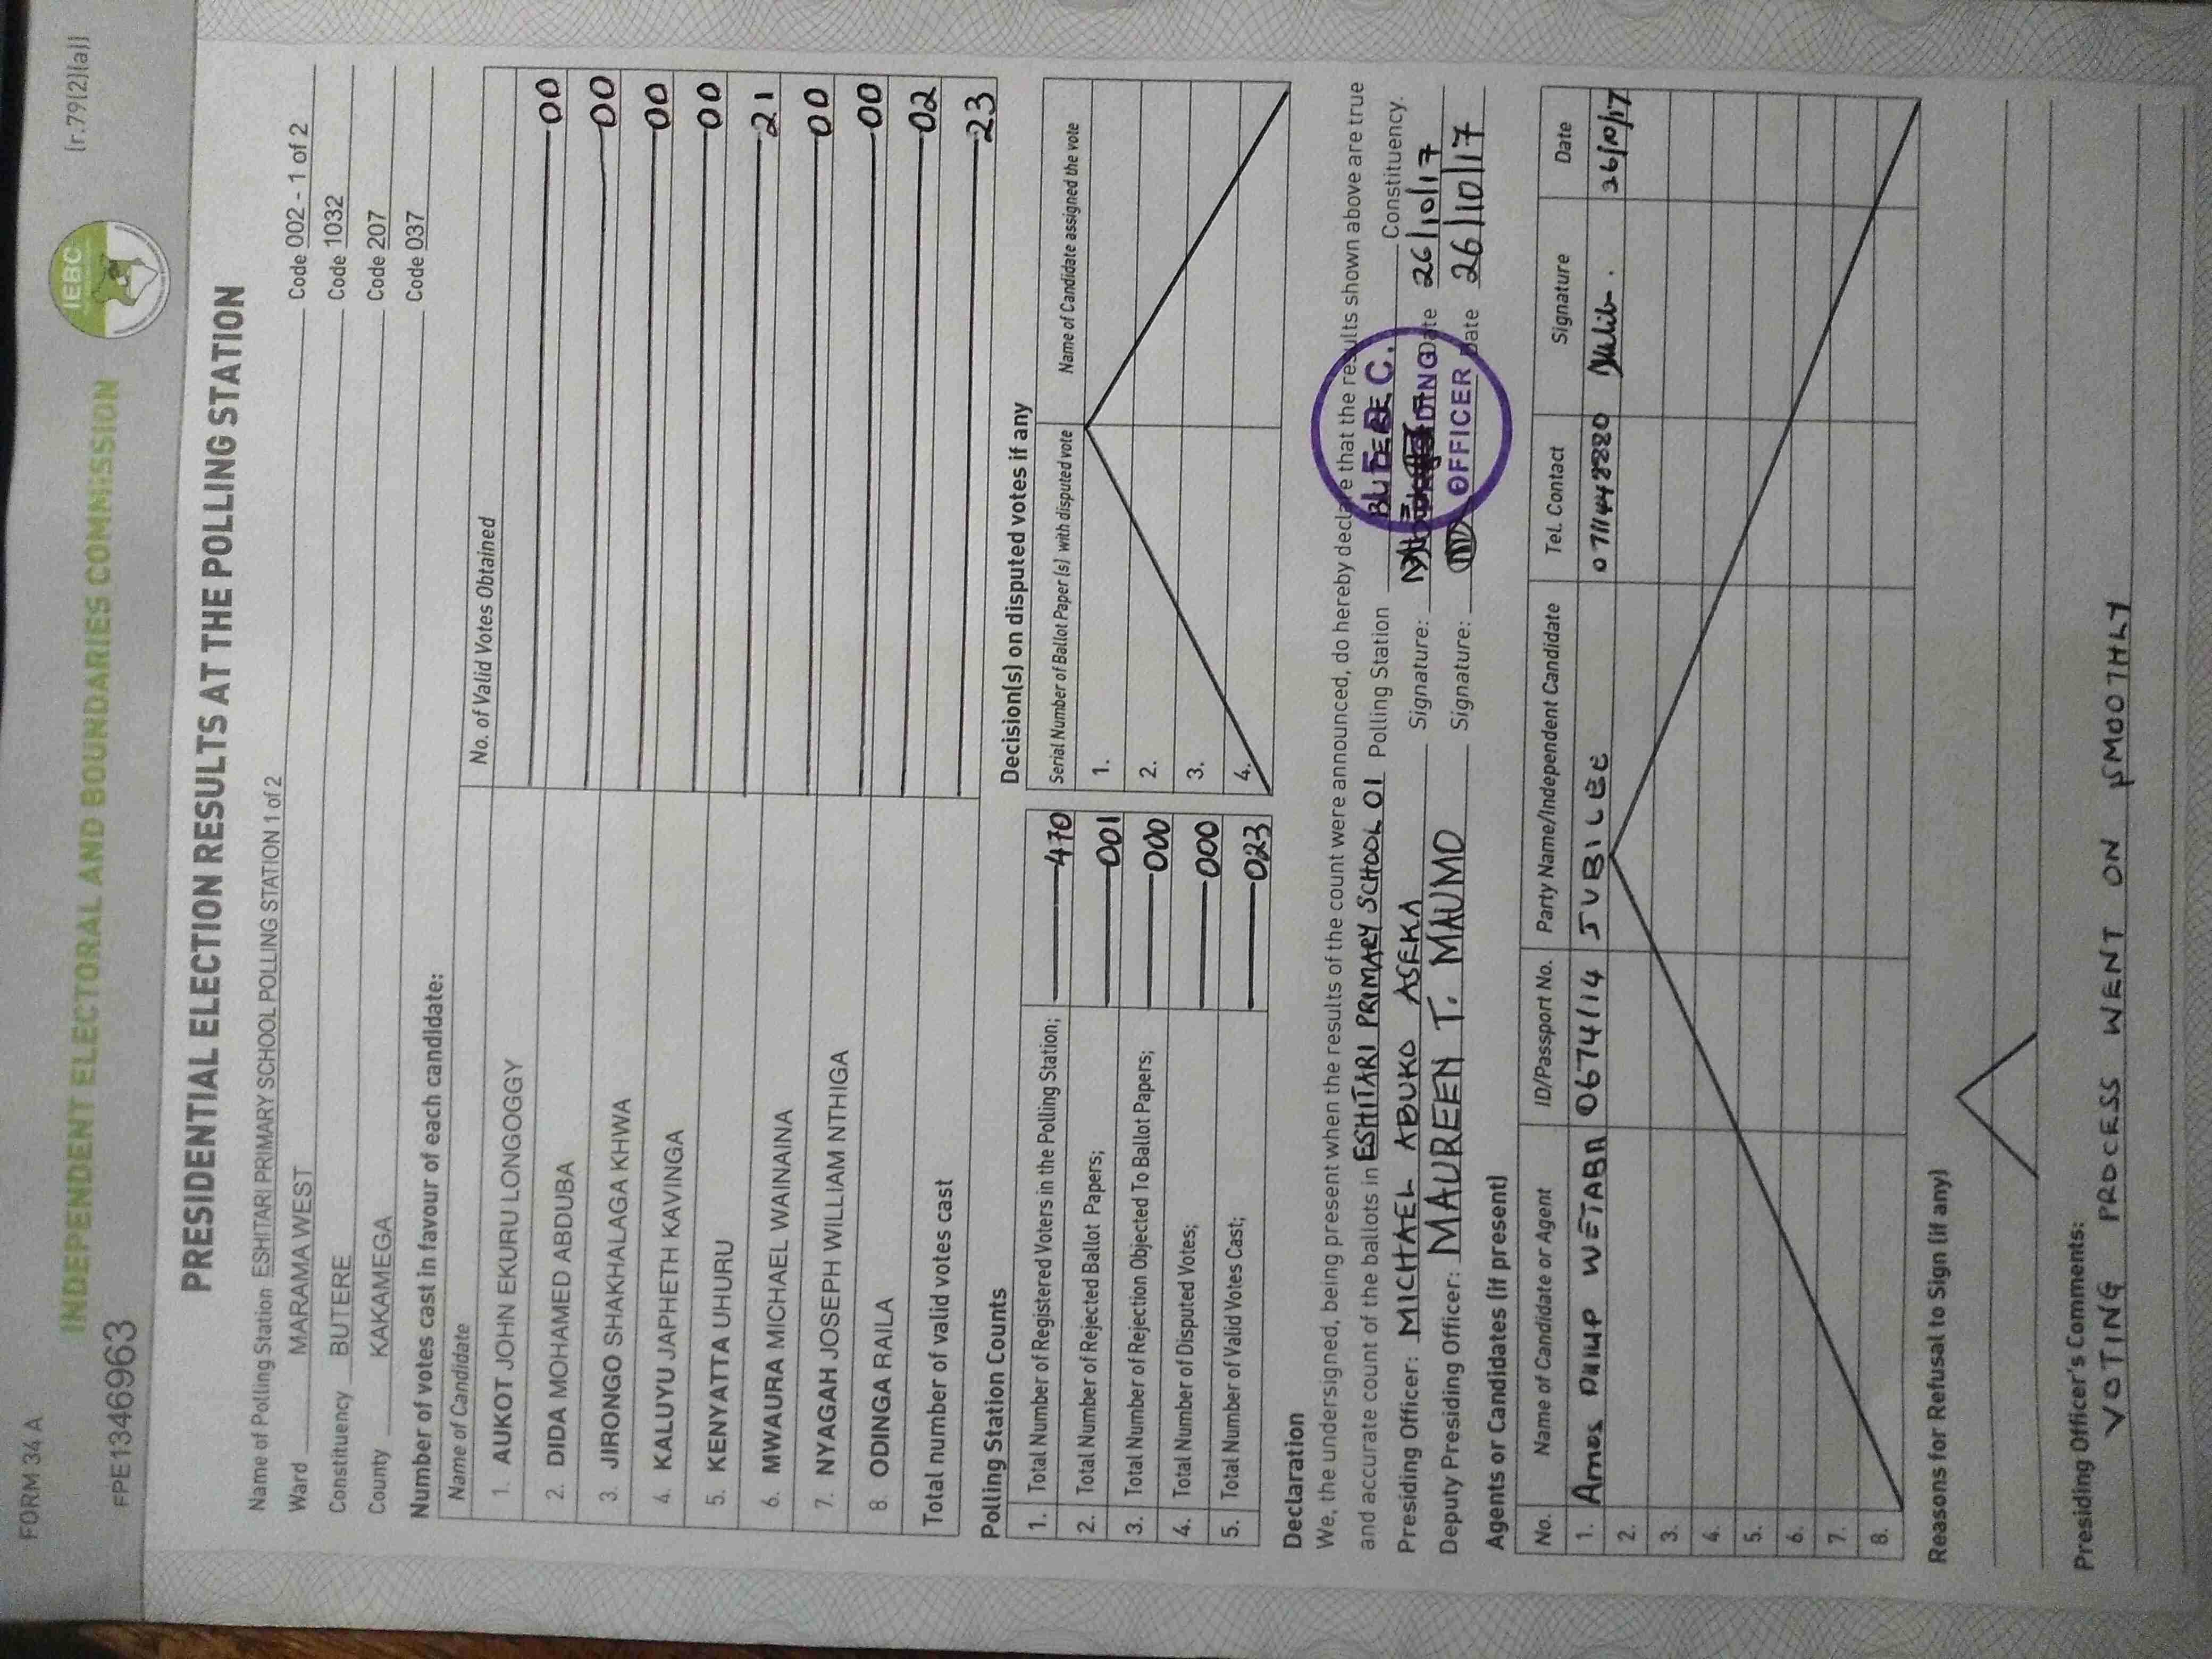 FORM 34 A
INDEPENDENT ELECTORAL AND BOUNDARIES COMMISSION
IEBC
[r.79(2)(a)]
FPE1346963
PRESIDENTIAL ELECTION RESULTS AT THE POLLING STATION
Name of Polling Station ESHITARI PRIMARY SCHOOL POLLING STATION 1 of 2 Code 002 - 1 of 2
Ward MARAMA WEST Code 1032
Constituency BUTERE Code 207
County KAKAMEGA Code 037
Number of votes cast in favour of each candidate:
Name of Candidate No. of Valid Votes Obtained
1. AUKOT JOHN EKURU LONGOGGY 00
2. DIDA MOHAMED ABDUBA 00
3. JIRONGO SHAKHALAGA KHWA 00
4. KALUYU JAPHETH KAVINGA 00
5. KENYATTA UHURU 21
6. MWAURA MICHAEL WAINAINA 00
7. NYAGAH JOSEPH WILLIAM NTHIGA 00
8. ODINGA RAILA 02
Total number of valid votes cast 23
Polling Station Counts
1. Total Number of Registered Voters in the Polling Station; 470
2. Total Number of Rejected Ballot Papers; 001
3. Total Number of Rejection Objected To Ballot Papers; 000
4. Total Number of Disputed Votes; 000
5. Total Number of Valid Votes Cast; 023
Decision(s) on disputed votes if any
Serial Number of Ballot Paper (s) with disputed vote Name of Candidate assigned the vote
1.
2.
3.
4.
Declaration
We, the undersigned, being present when the results of the count were announced, do hereby declare that the results shown above are true
and accurate count of the ballots in ESHITARI PRIMARY SCHOOL 01 Polling Station BUTERE Constituency.
Presiding Officer: MICHAEL ABUKO ASEKA Signature: Date 26/10/17
Deputy Presiding Officer: MAUREEN T. MAUMO Signature: Date 26/10/17
OFFICER
Agents or Candidates (if present)
No. Name of Candidate or Agent ID/Passport No. Party Name/Independent Candidate Tel. Contact Signature Date
1. Amos PHILIP WETABA 0674114 JUBILEE 26/10/17
2.
3.
4.
5.
6.
7.
8.
Reasons for Refusal to Sign (if any)
Presiding Officer's Comments:
VOTING PROCESS WENT ON SMOOTHLY